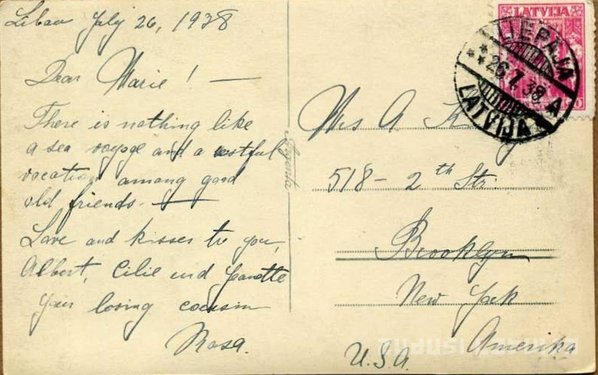 Libau July 26, 1938
Dear Marie! —
There is nothing like
a sea voyage and a restful
vacation among good
old friends. —
Love and kisses to you,
Albert, Cilie und Jeanette
your loving cousin
Rosa.
LATVIJA
LIEPAJA
26.7.38 A
LATVIJA
Mrs A
518 - 2th Str.
Brooklyn
New York
Amerika
U.S.A.